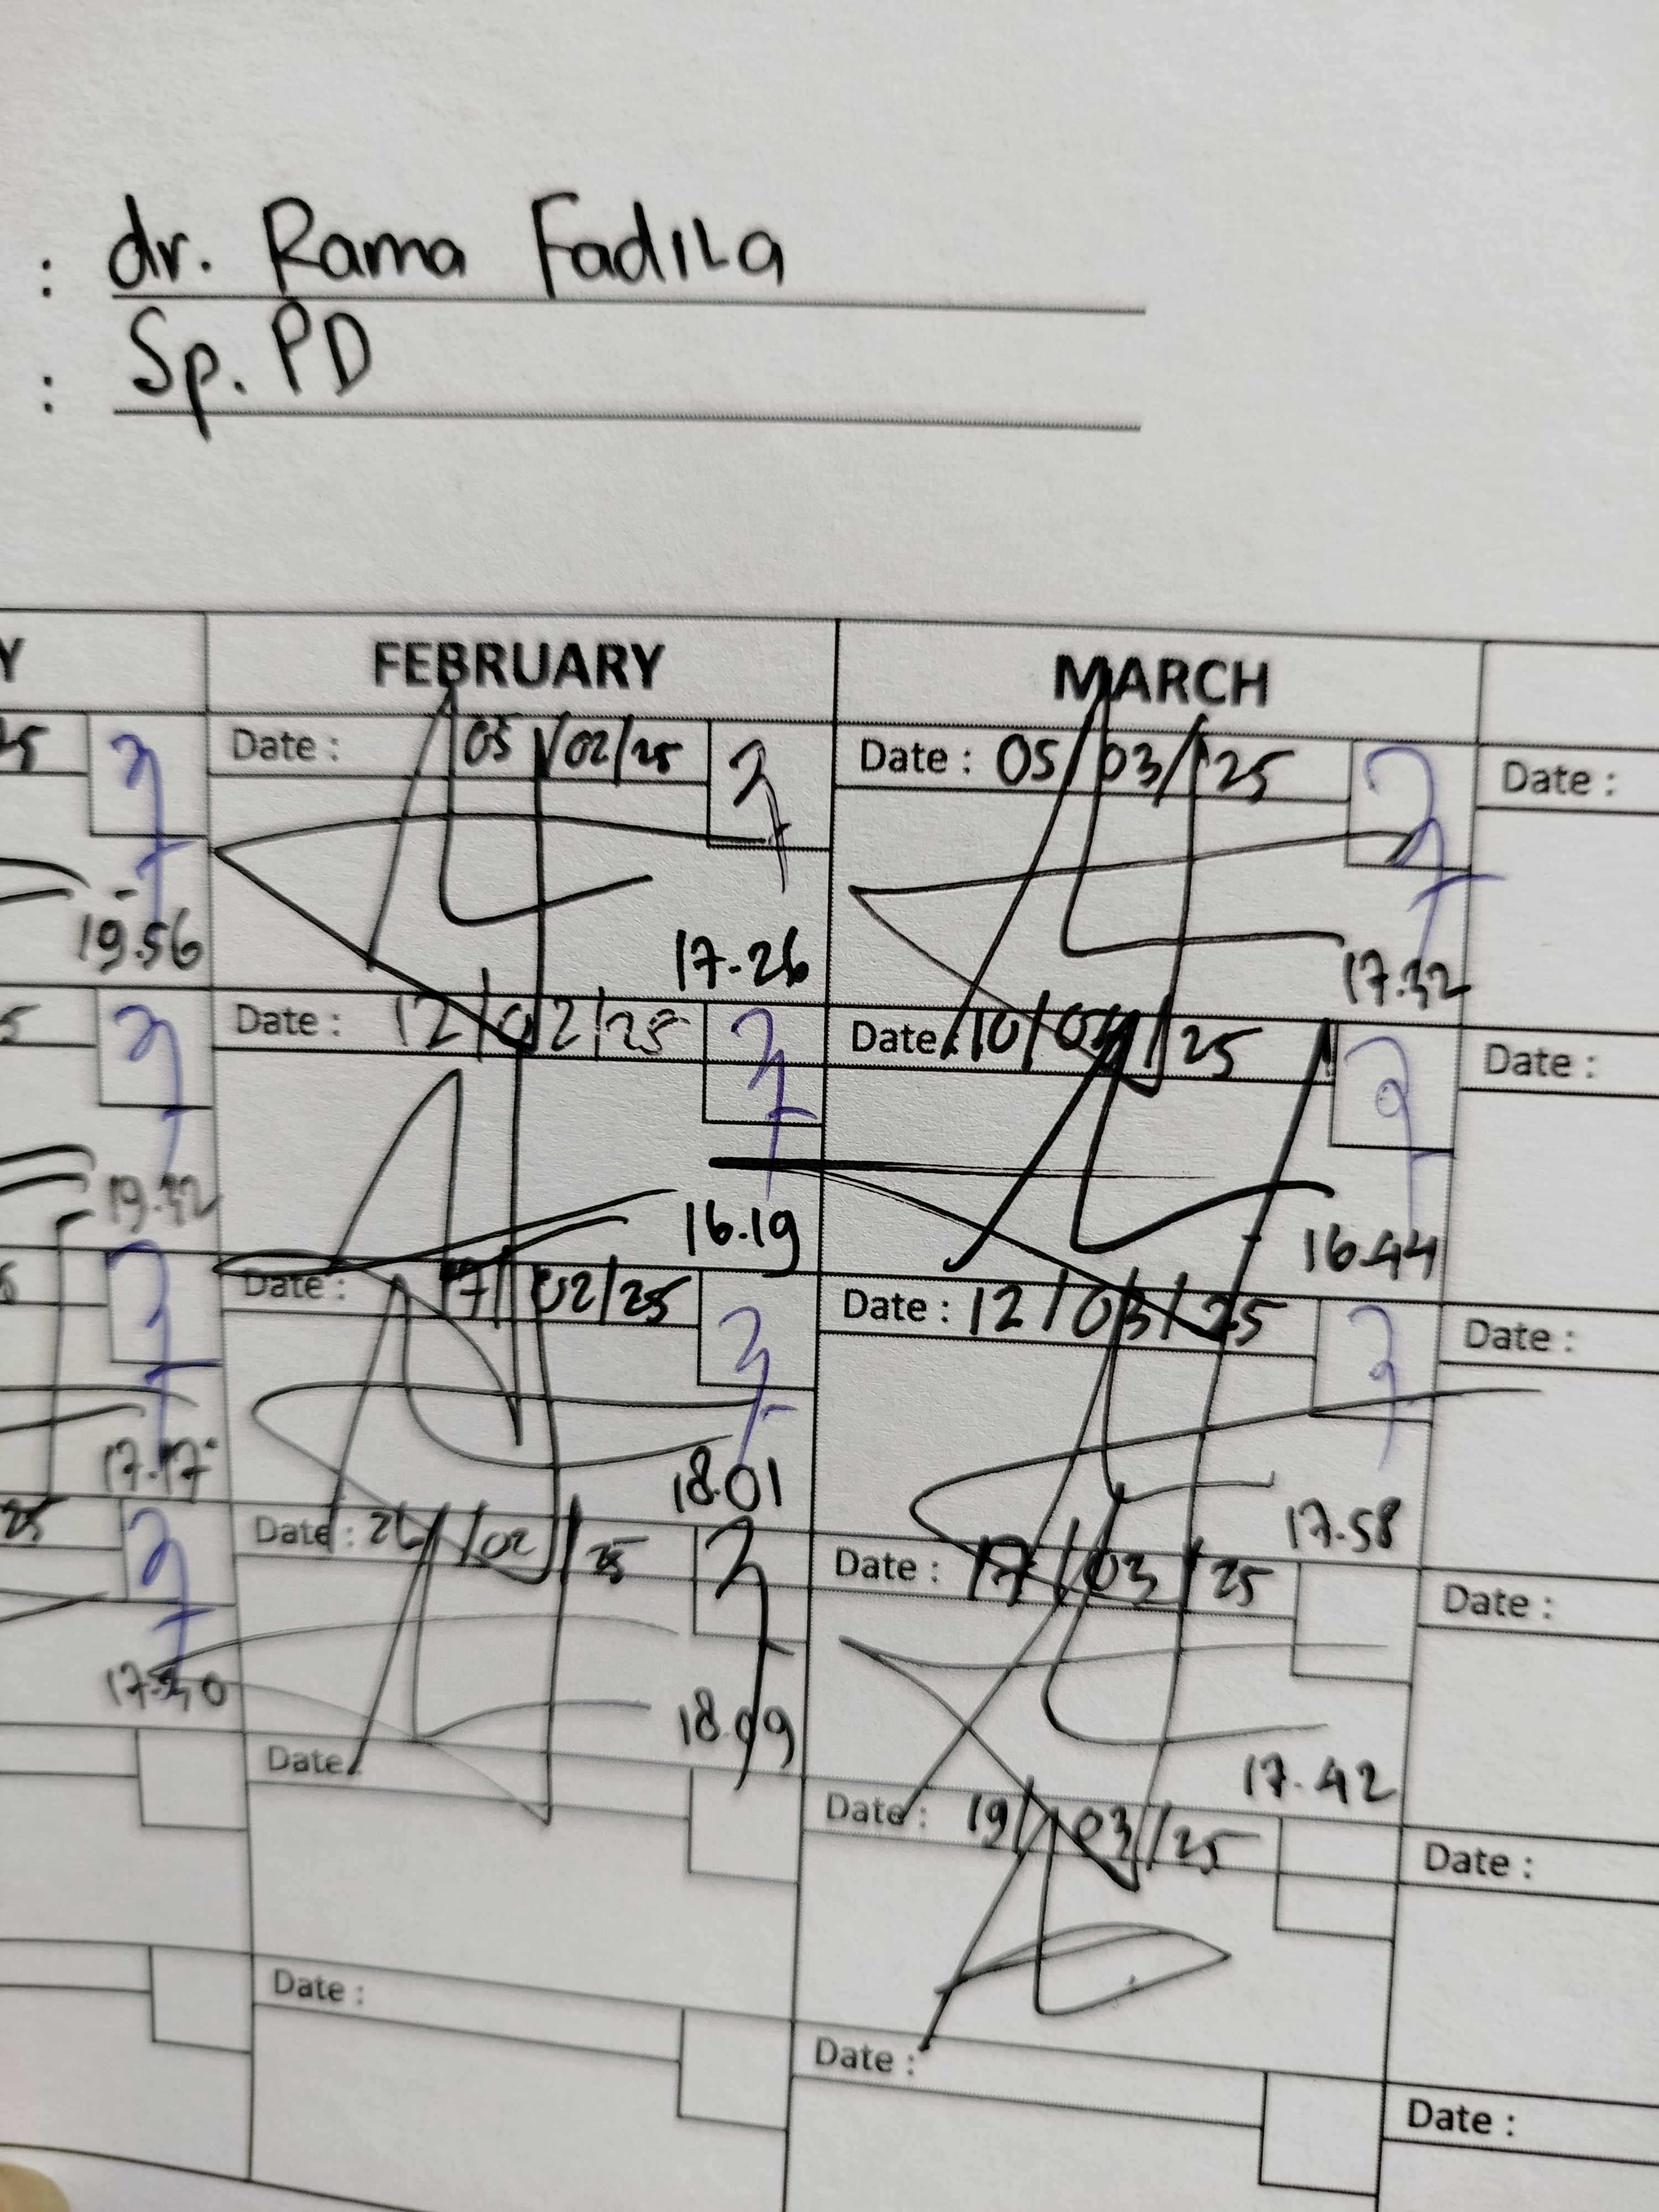 : dr. Rama Fadila
: Sp. PD
Y FEBRUARY MARCH
25 Date : 05/02/25 Date : 05/03/25 Date :
19.56 17.26 17.32
5 Date : 12/02/25 Date : 10/03/25 Date :
19.32 16.19 16.44
Date : 17/02/25 Date : 12/03/25 Date :
17.17 18.01 17.58
25 Date : 26/02/25 Date : 17/03/25 Date :
18.09 17.42
Date : Date : 19/03/25 Date :
Date : Date : Date :